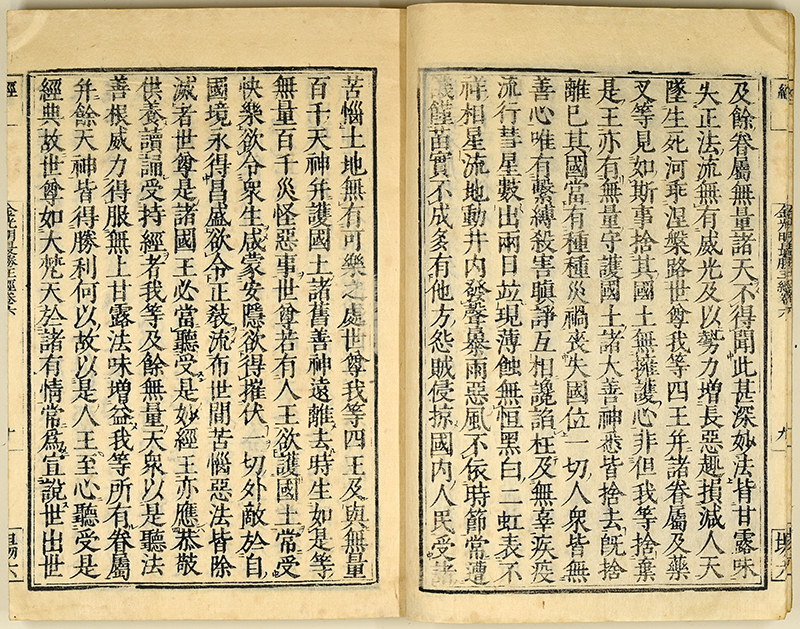 及餘眷屬無量諸天不得聞此甚深妙法背甘露味
失正法流無有威光及以勢力增長惡趣損減人天
墜生死河乖涅槃路世尊我等四王并諸眷屬及藥
叉等見如斯事捨其國土無擁護心非但我等捨棄
是王亦有無量守護國土諸大善神悉皆捨去旣捨
離已其國當有種種災禍喪失國位一切人衆皆無
善心唯有繫縛殺害瞋諍互相讒諂枉及無辜疾疫
流行彗星數出兩日並現薄蝕無恒黑白二虹表不
祥相星流地動井內發聲暴雨惡風不依時節常遭
饑饉苗實不成多有他方怨賊侵掠國內人民受諸
苦惱土地無有可樂之處世尊我等四王及與無量
百千天神并護國土諸舊善神遠離去時生如是等
無量百千災怪惡事世尊若有人王欲護國土常受
快樂欲令衆生咸蒙安隱欲得摧伏一切外敵於自
國境永得昌盛欲令正教流布世間苦惱惡法皆除
滅者世尊是諸國王必當聽受是妙經王亦應恭敬
供養讀誦受持經者我等及餘無量天衆以是聽法
善根威力得服無上甘露法味增益我等所有眷屬
并餘天神皆得勝利何以故以是人王至心聽受是
經典故世尊如大梵天於諸有情常爲宣說世出世